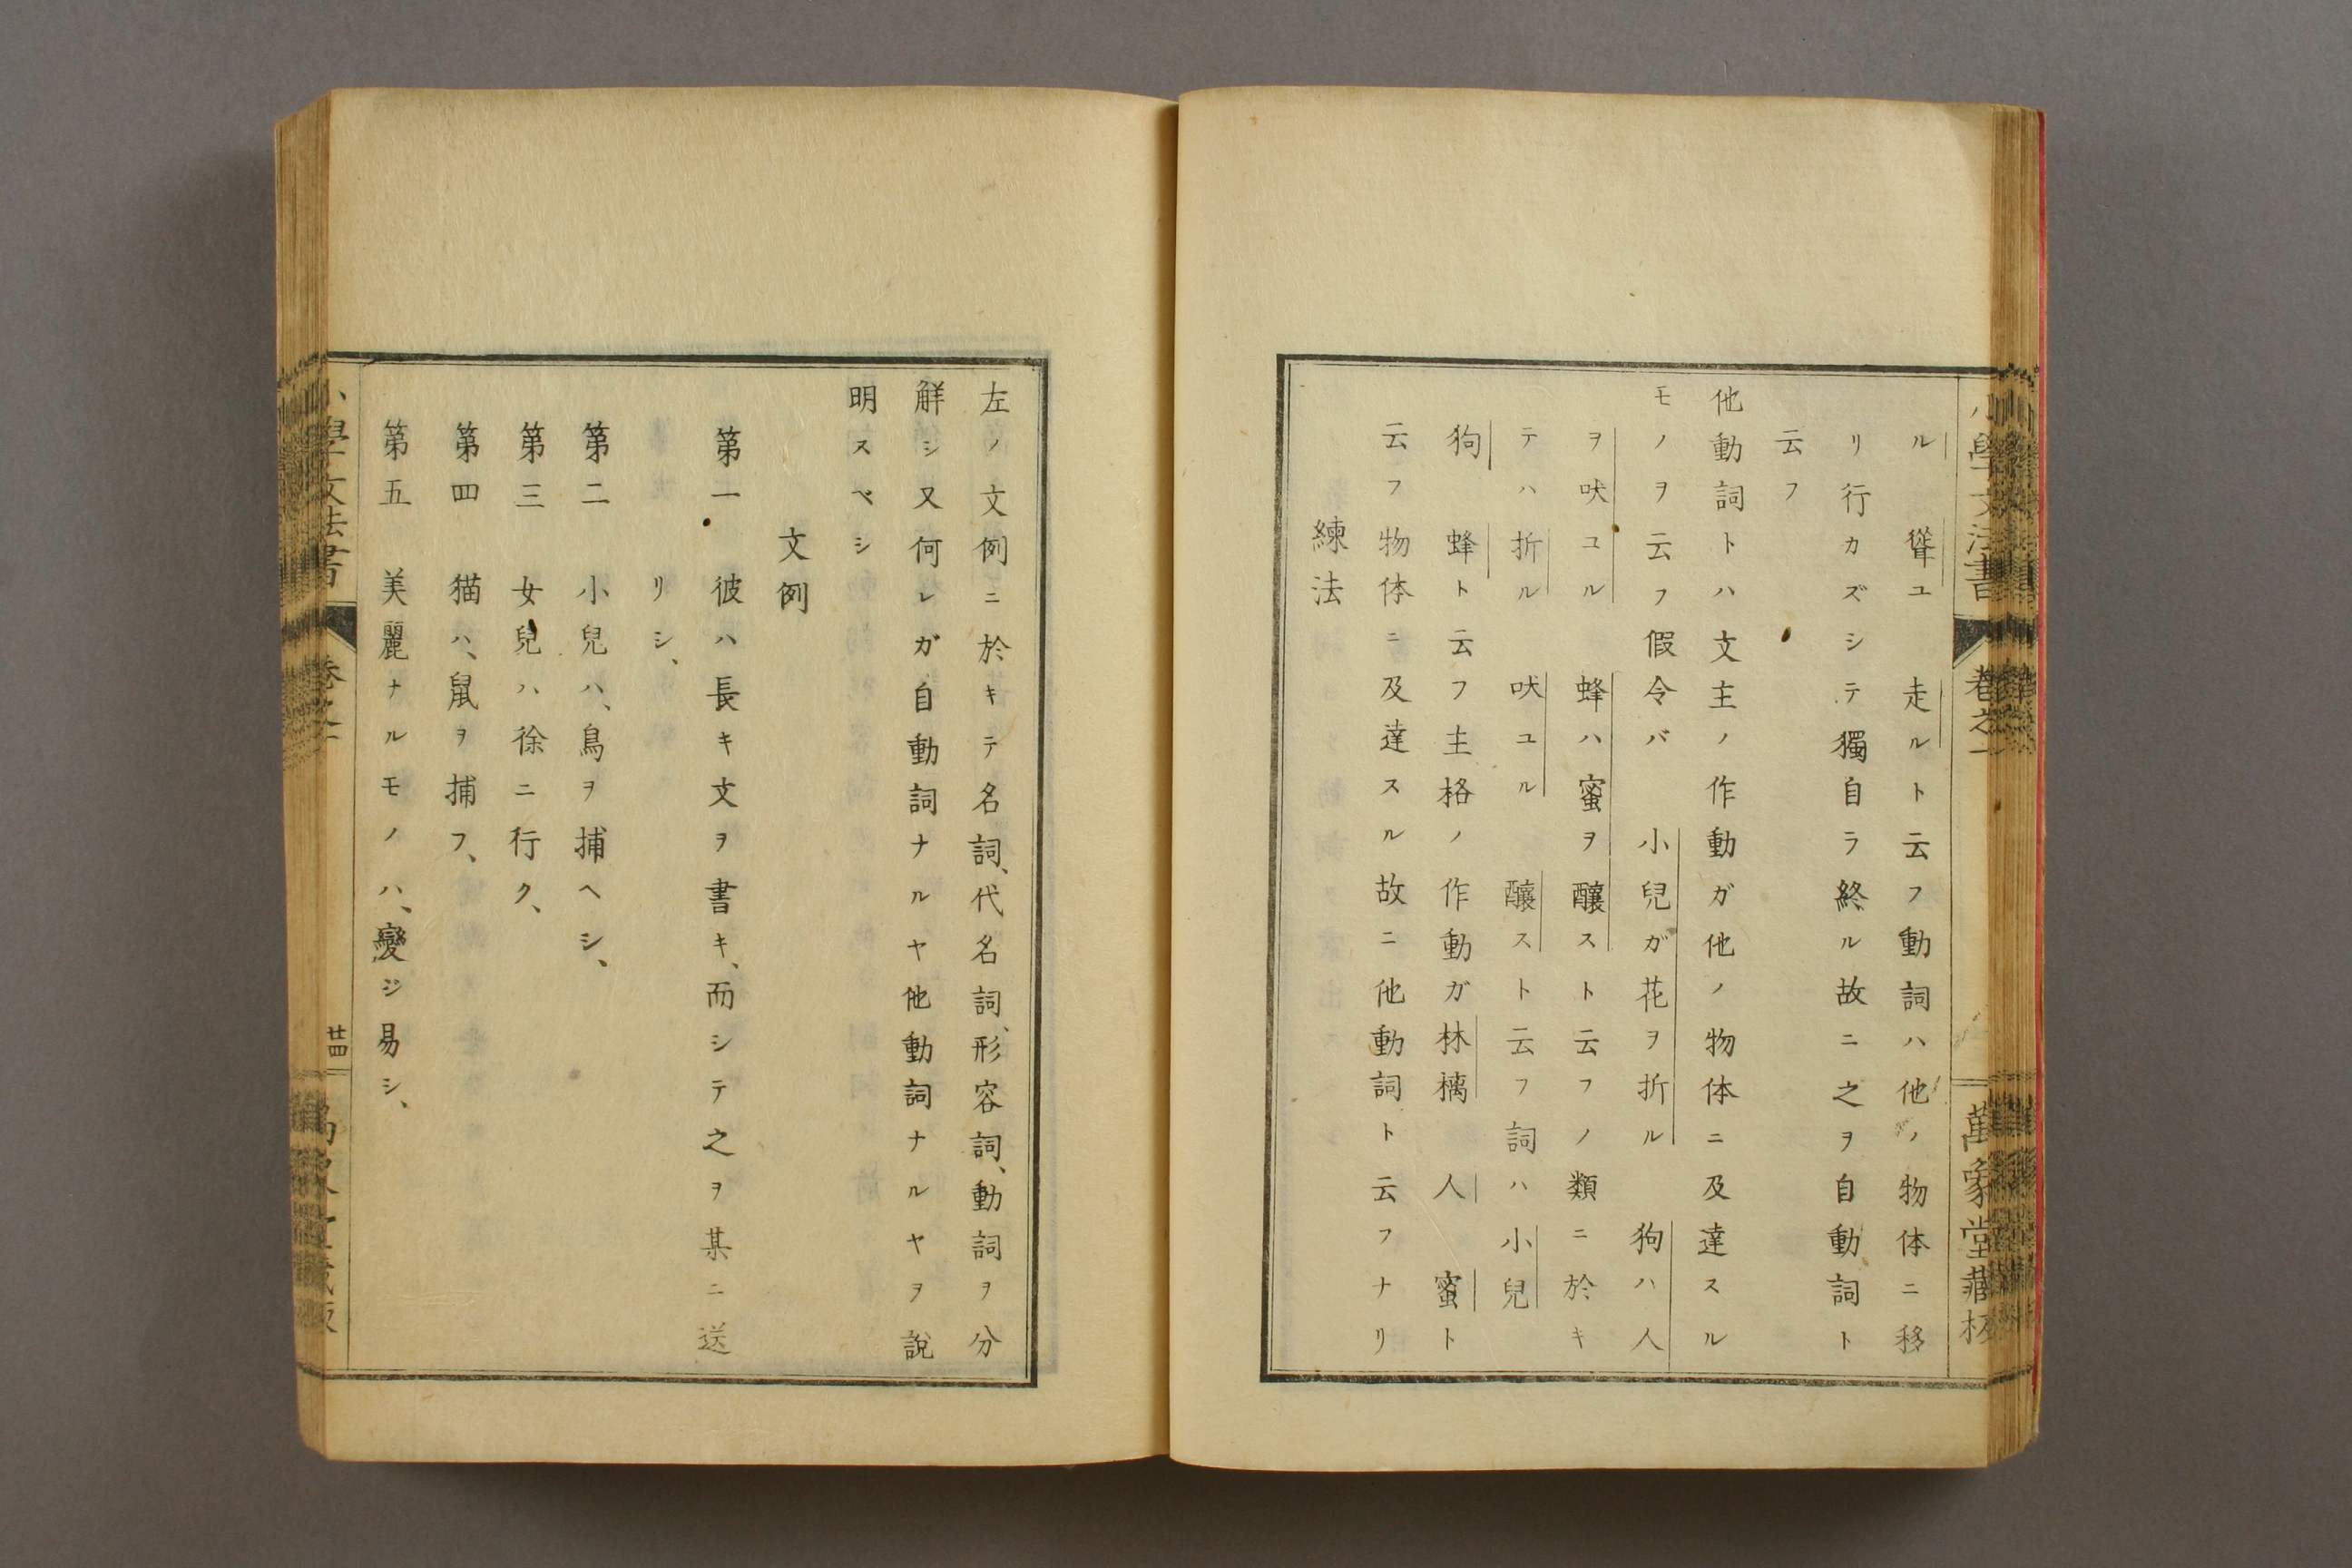 小學文法書 卷之一 萬象堂藏板
ル 聳ユ 走ルト云フ動詞ハ他ノ物体ニ移
リ行カズシテ獨自ラ終ル故ニ之ヲ自動詞ト
云フ
他動詞トハ文主ノ作動ガ他ノ物体ニ及達スル
モノヲ云フ假令バ 小兒ガ花ヲ折ル 狗ハ人
ヲ吠ユル 蜂ハ蜜ヲ醸スト云フノ類ニ於キ
テハ折ル 吠ユル 醸スト云フ詞ハ小兒
狗 蜂ト云フ主格ノ作動ガ林檎 人 蜜ト
云フ物体ニ及達スル故ニ他動詞ト云フナリ
練法
左ノ文例ニ於キテ名詞、代名詞、形容詞、動詞ヲ分
解シ又何レガ自動詞ナルヤ他動詞ナルヤヲ說
明スベシ
文例
第一 彼ハ長キ文ヲ書キ、而シテ之ヲ某ニ送
リシ、
第二 小兒ハ、鳥ヲ捕ヘシ、
第三 女兒ハ徐ニ行ク、
第四 猫ハ、鼠ヲ捕フ、
第五 美麗ナルモノハ、變ジ易シ、
小學文法書 卷之一 廿四